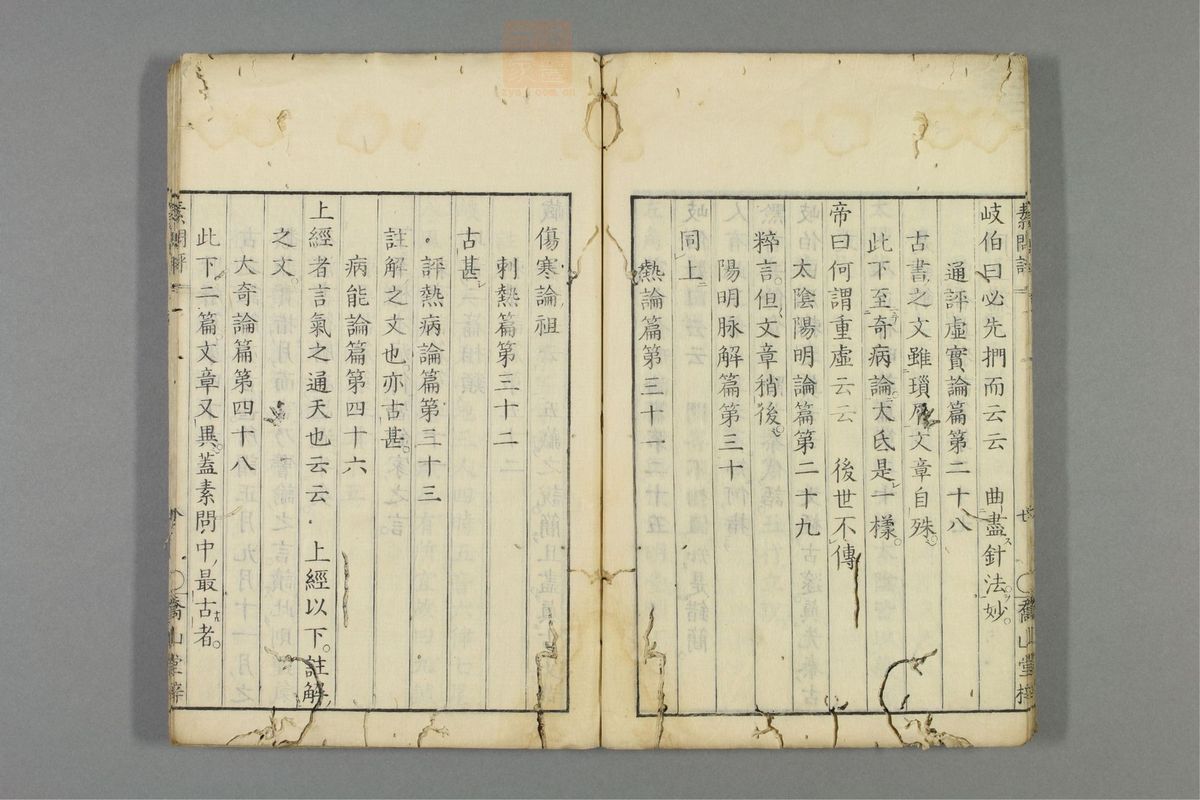 岐伯曰必先捫而云云　曲盡針法妙。
通評虛實論篇第二十八
古書之文雖瑣屑文章自殊。
此下至奇病論大氐是一樣。
帝曰何謂重虛云云　後世不傳
太陰陽明論篇第二十九
粹言。但文章稍後。
陽明脉解篇第三十
同上
熱論篇第三十一
傷寒論祖
刺熱篇第三十二
古甚
評熱病論篇第三十三
註解之文也亦古甚。
病能論篇第四十六
上經者言氣之通天也云云　上經以下。註解
之文。
大奇論篇第四十八
此下二篇文章又異。蓋素問中最古者。
素問評
喬山堂梓